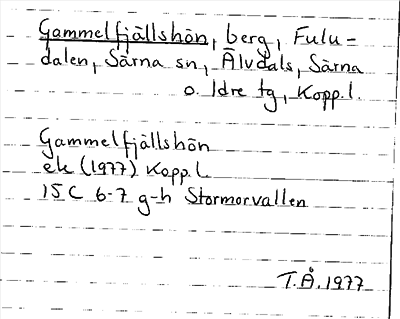 Gammelfjällshön, berg, Fulu-
dalen, Särna sn, Älvdals, Särna
o. Idre tg, Kopp.l.
Gammelfjällshön
ek (1977) Kopp.l.
15C 6-7 g-h Stormorvallen
T.Å. 1977